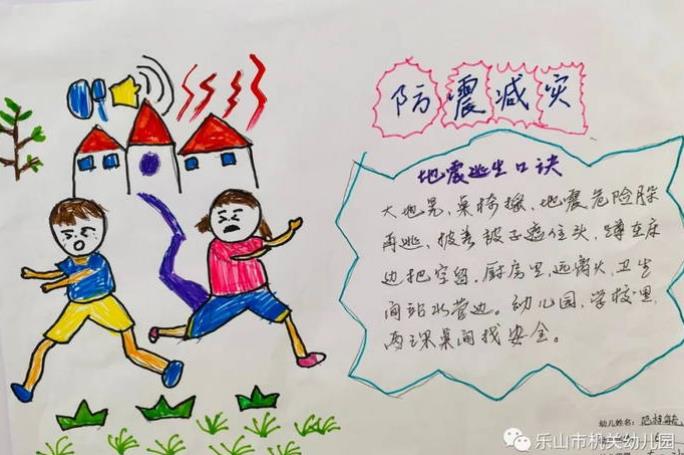 防震减灾
地震逃生口诀
大地晃，桌椅摇，地震危险躲
再逃，披着被子遮住头，蹲在床
边把空留。厨房里，远离火，卫生
间站水管边。幼儿园，学校里，
两课桌间找安全。
幼儿姓名：
乐山市机关幼儿园